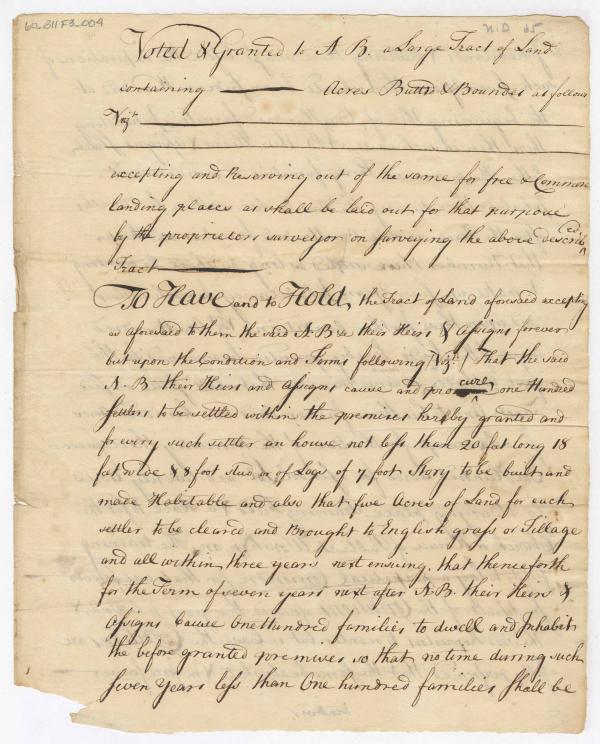 60_811 F3_004
N.D. 65
Voted & Granted to A B. a Large Tract of Land
containing ——— Acres Buttd & Bounded as follows
Vizt.
excepting and Reserving out of the same for free & Common
landing places as shall be laid out for that purpose
by the proprietors surveyor on surveying the above describ^ed
Tract
To Have and to Hold, the Tract of Land aforesaid excepting
as aforesaid to them the said A. B &c their Heirs & Assigns forever
but upon the Condition and Terms following (Vizt.) That the said
A. B. their Heirs and Assigns cause and procure one Hundred
settlers to be settled within the premises hereby granted and
for every such settler an house not less than 20 feet long 18
feet wide & 8 foot stud, or of Logs of 7 foot Story to be built and
made Habitable and also that five Acres of Land for each
settler to be cleared and Brought to English grass or Tillage
and all within three years next ensuing, that thenceforth
for the Term of seven years next after A. B. their Heirs &
Assigns Cause One Hundred families to dwell and Inhabit
the before granted premises so that no time during such
seven Years less than One hundred families shall be